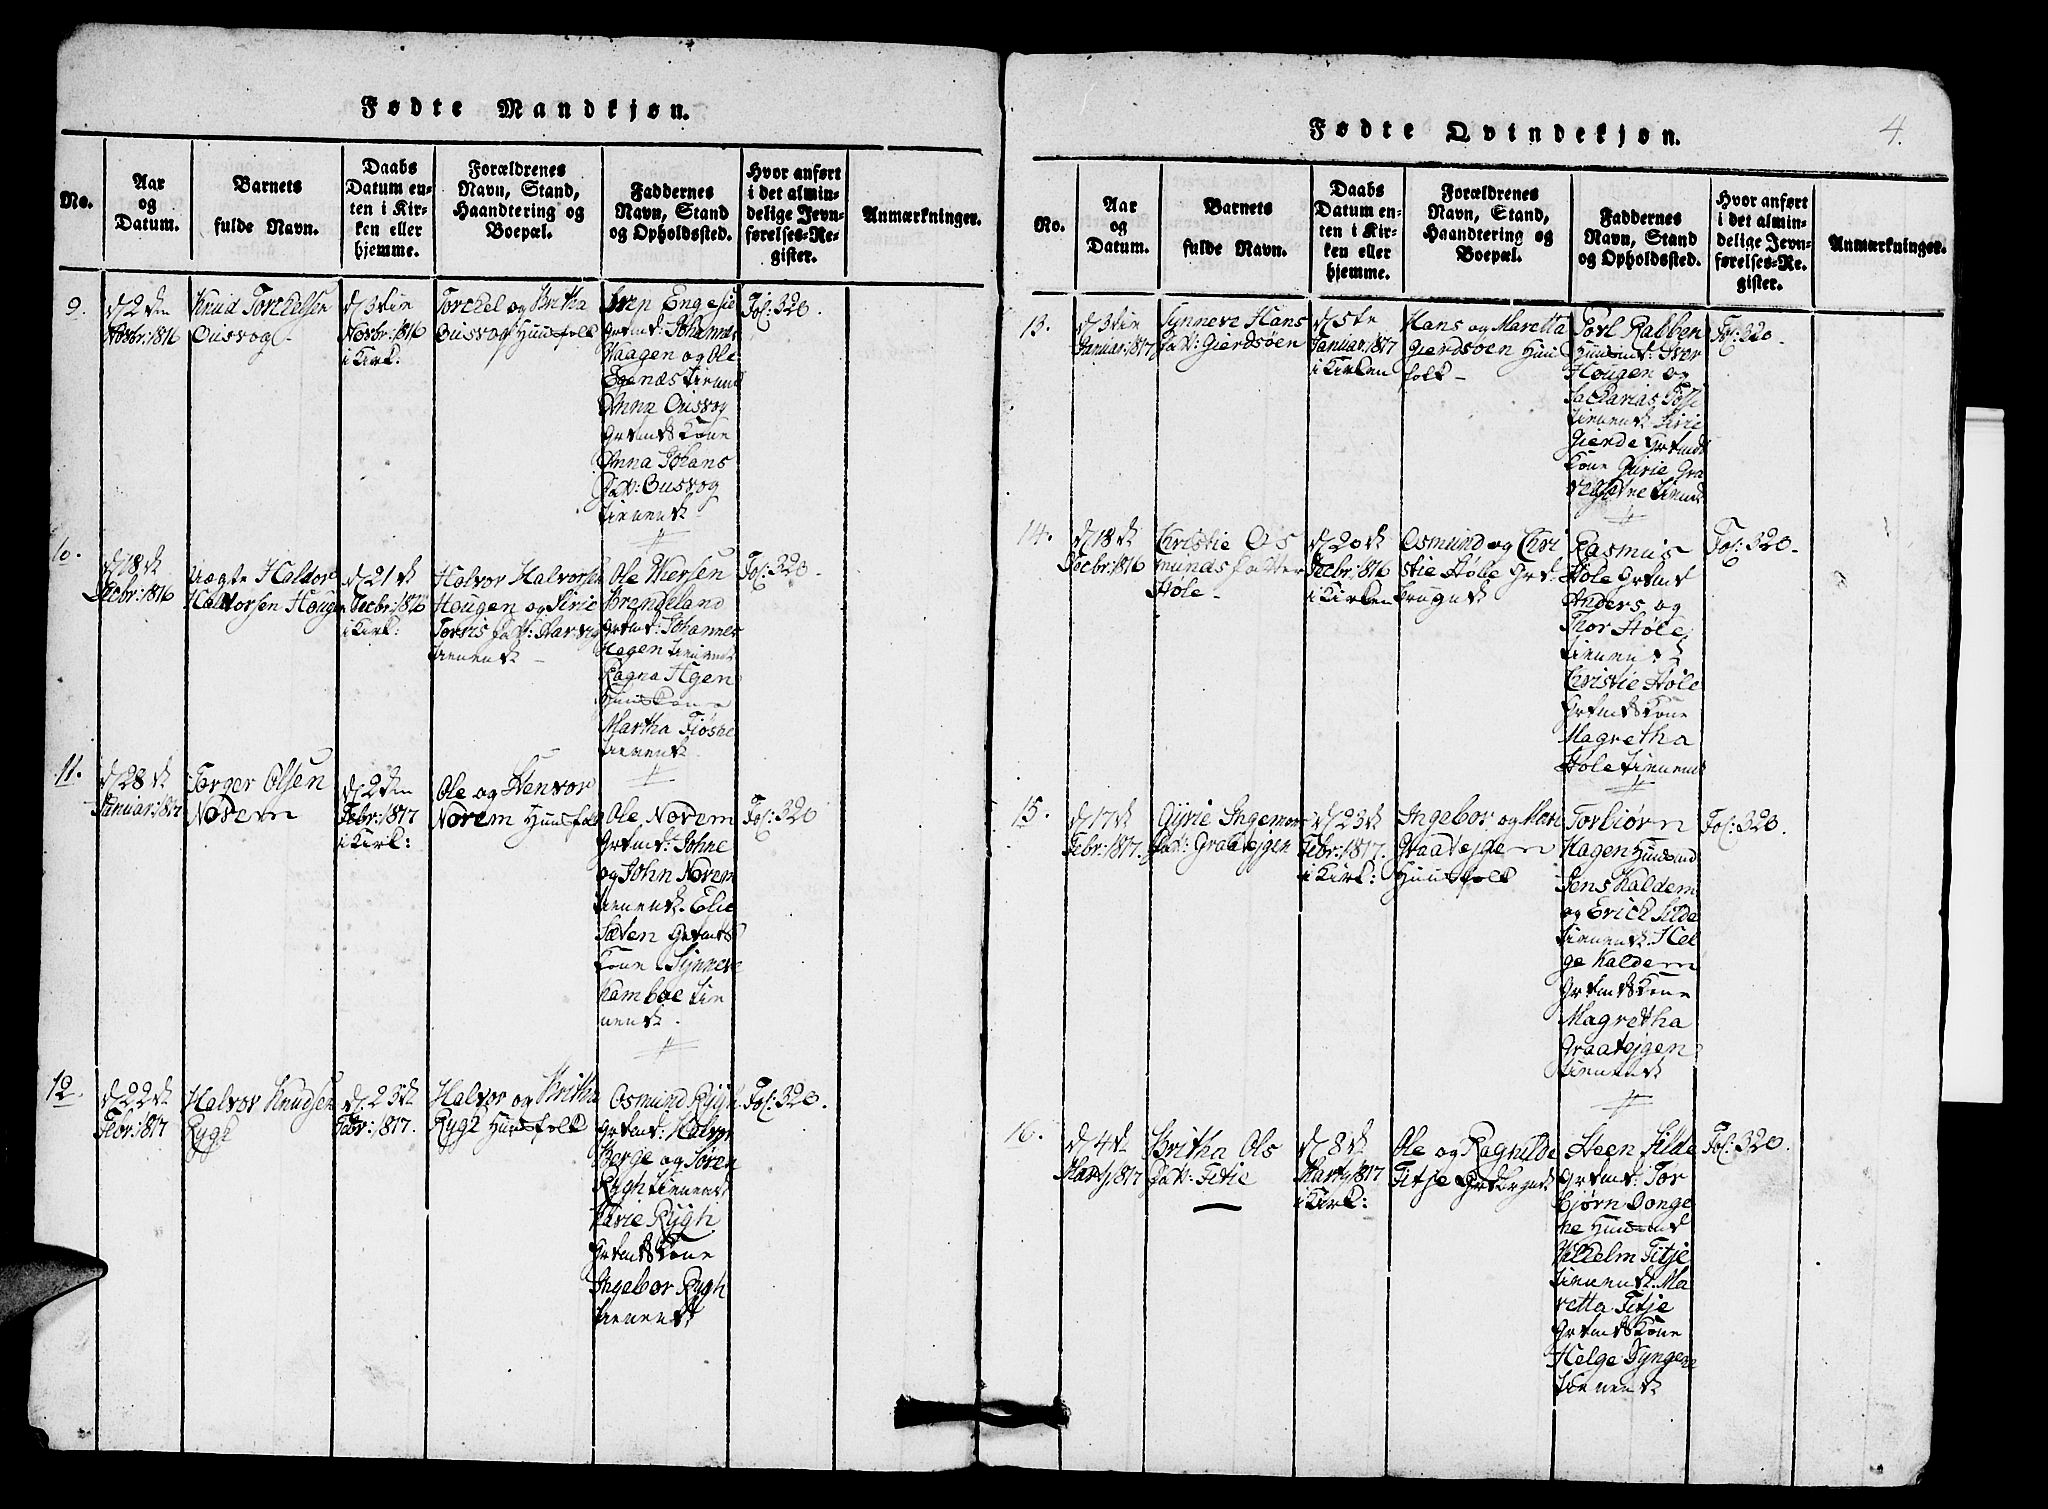 Fødte Mandkjøn.
No.
Aar
og
Datum.
Barnets
fulde Navn.
Daabs
Datum en-
ten i Kir-
ken eller
hjemme.
Forældrenes
Navn, Stand,
Haandtering og
Boepæl.
Faddernes
Navn, Stand
og Opholdssted.
Hvor anført
i det almin-
delige Jevn-
førelses-Re-
gister.
Anmærkninger.
9.
d 2den
Novbr: 1816
Knud Torckelsen
Ousvog
d 3die
Novbr: 1816
i Kirk:
Torckel og Britha
Ousvog Huusfolk
Engesie
Grdmd: Johannes
Haagen og Ole
Egenæs
Anna Ousvog
Grdmds Kone
Anna Johans
Dat: Ousvog
tienende
Fol: 320.
10.
d 18de
Decbr: 1816
Aagte Haldor
Halvorsen Hougen
d 21de
Decbr: 1816
i Kirk:
Halvor Halvorsen
Hougen og Sirie
tienende
Ole Iversen
Brendeland
Grdmd: Johannes
Hagen tienende
Ragna Hgen
Huuskone
Martha Fiøsne
tienende
Fol: 320.
11.
d 28de
Januar: 1817
Torger Olsen
Norem
d 2den
Febr: 1817
i Kirk:
Ole og Stenvor
Norem Huusfolk
Ole Norem
Grdmd: Johne
og John Norem
tienende. Elie
Sæten Grdmds
Kone. Synneve
Kamboe tie
nende.
Fol: 320
12.
d 22de
Febr: 1817
Halvor Knudsen
Rygh
d 23de
Febr: 1817.
Halvor og Britha
Rygh Huusfolk
Osmund Rygh
Grdmd: Halvor
Berge og Søren
Rygh tienende
Karie Rygh
Grdmds Kone
Ingebor Rygh
tienende
Fol: 320.
Fødte Qvindekjøn.
4.
No.
Aar
og
Datum.
Barnets
fulde Navn.
Daabs
Datum en-
ten i Kir-
ken eller
hjemme.
Forældrenes
Navn, Stand,
Haandtering og
Boepæl.
Faddernes
Navn, Stand
og Opholdssted.
Hvor anført
i det almin-
delige Jevn-
førelses-Re-
gister.
Anmærkninger.
13.
d 3die
Januar: 1817
Synneve Hans
Dat: Gierdsøen
d 5te
Januar: 1817
i Kirken
Hans og Maretta
Gierdsøen Huus
folk
Torl Rabben
Huusmd: Iver
Hougen og
Sacharias
tienende Sirie
Gierde Grdmds
Kone Gurie
tienende
Fol: 320.
14.
d 18de
Decbr: 1816
Christie Os
munds Datter
Støle
d 20de
Decbr: 1816
i Kirken
Osmund og Chri
stie Støle Grd
brugende
Rasmus
Støle Grdmd
Anders og
Thor Støle
tienende
Christie Støle
Grdmds Kone
Magretha
Støle tienende
Fol: 320.
15.
d 17de
Febr: 1817.
Gyrie Ingemor
Dat: Graatejgen
d 23de
Febr: 1817.
i Kirk:
Ingebor og Mari
Graatejgen
Huusfolk
Torbiørn
Hagen Huusmd
Jens Kaldem
og Erick Silde
tienende. Hel
ge Kaldem
Grdmds Kone
Magretha
Graatejgen
tienende
Fol: 320.
16.
d 4de
Marty 1817
Britha Ols
Dat: Titie
d 8de
Marty 1817
i Kirk:
Ole og Ragnilde
Titje Grdbrgnde
Steen Silde
Grdmd: Tor
bjørn Donge
ne Huusmd
Vilhelm Titje
tienende. Ma
retta Titje
Grdmds Kone
Helge Syngene
tienende
Fol: 320.